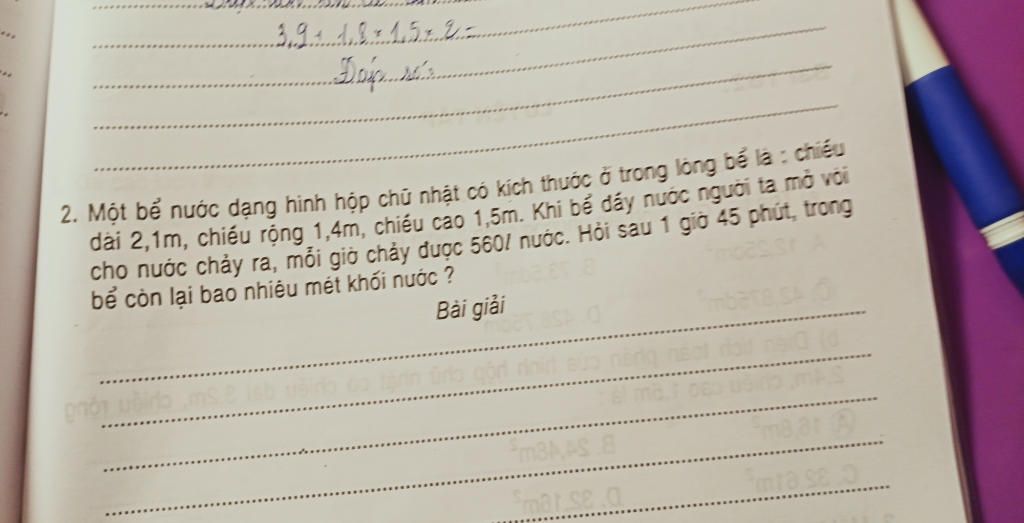 3,9 + 1,8 + 1,5 + 2 =
Đáp số:
2. Một bể nước dạng hình hộp chữ nhật có kích thước ở trong lòng bể là : chiều
dài 2,1m, chiều rộng 1,4m, chiều cao 1,5m. Khi bể đầy nước người ta mở vòi
cho nước chảy ra, mỗi giờ chảy được 560l nước. Hỏi sau 1 giờ 45 phút, trong
bể còn lại bao nhiêu mét khối nước ?
Bài giải